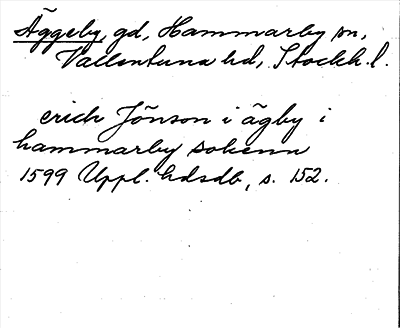 Äggeby, gd, Hammarby sn,
Vallentuna hd, Stockh. l.
erich Jönson i ägby i
hammarby sokenn
1599 Uppl. hdsdb, s. 152.